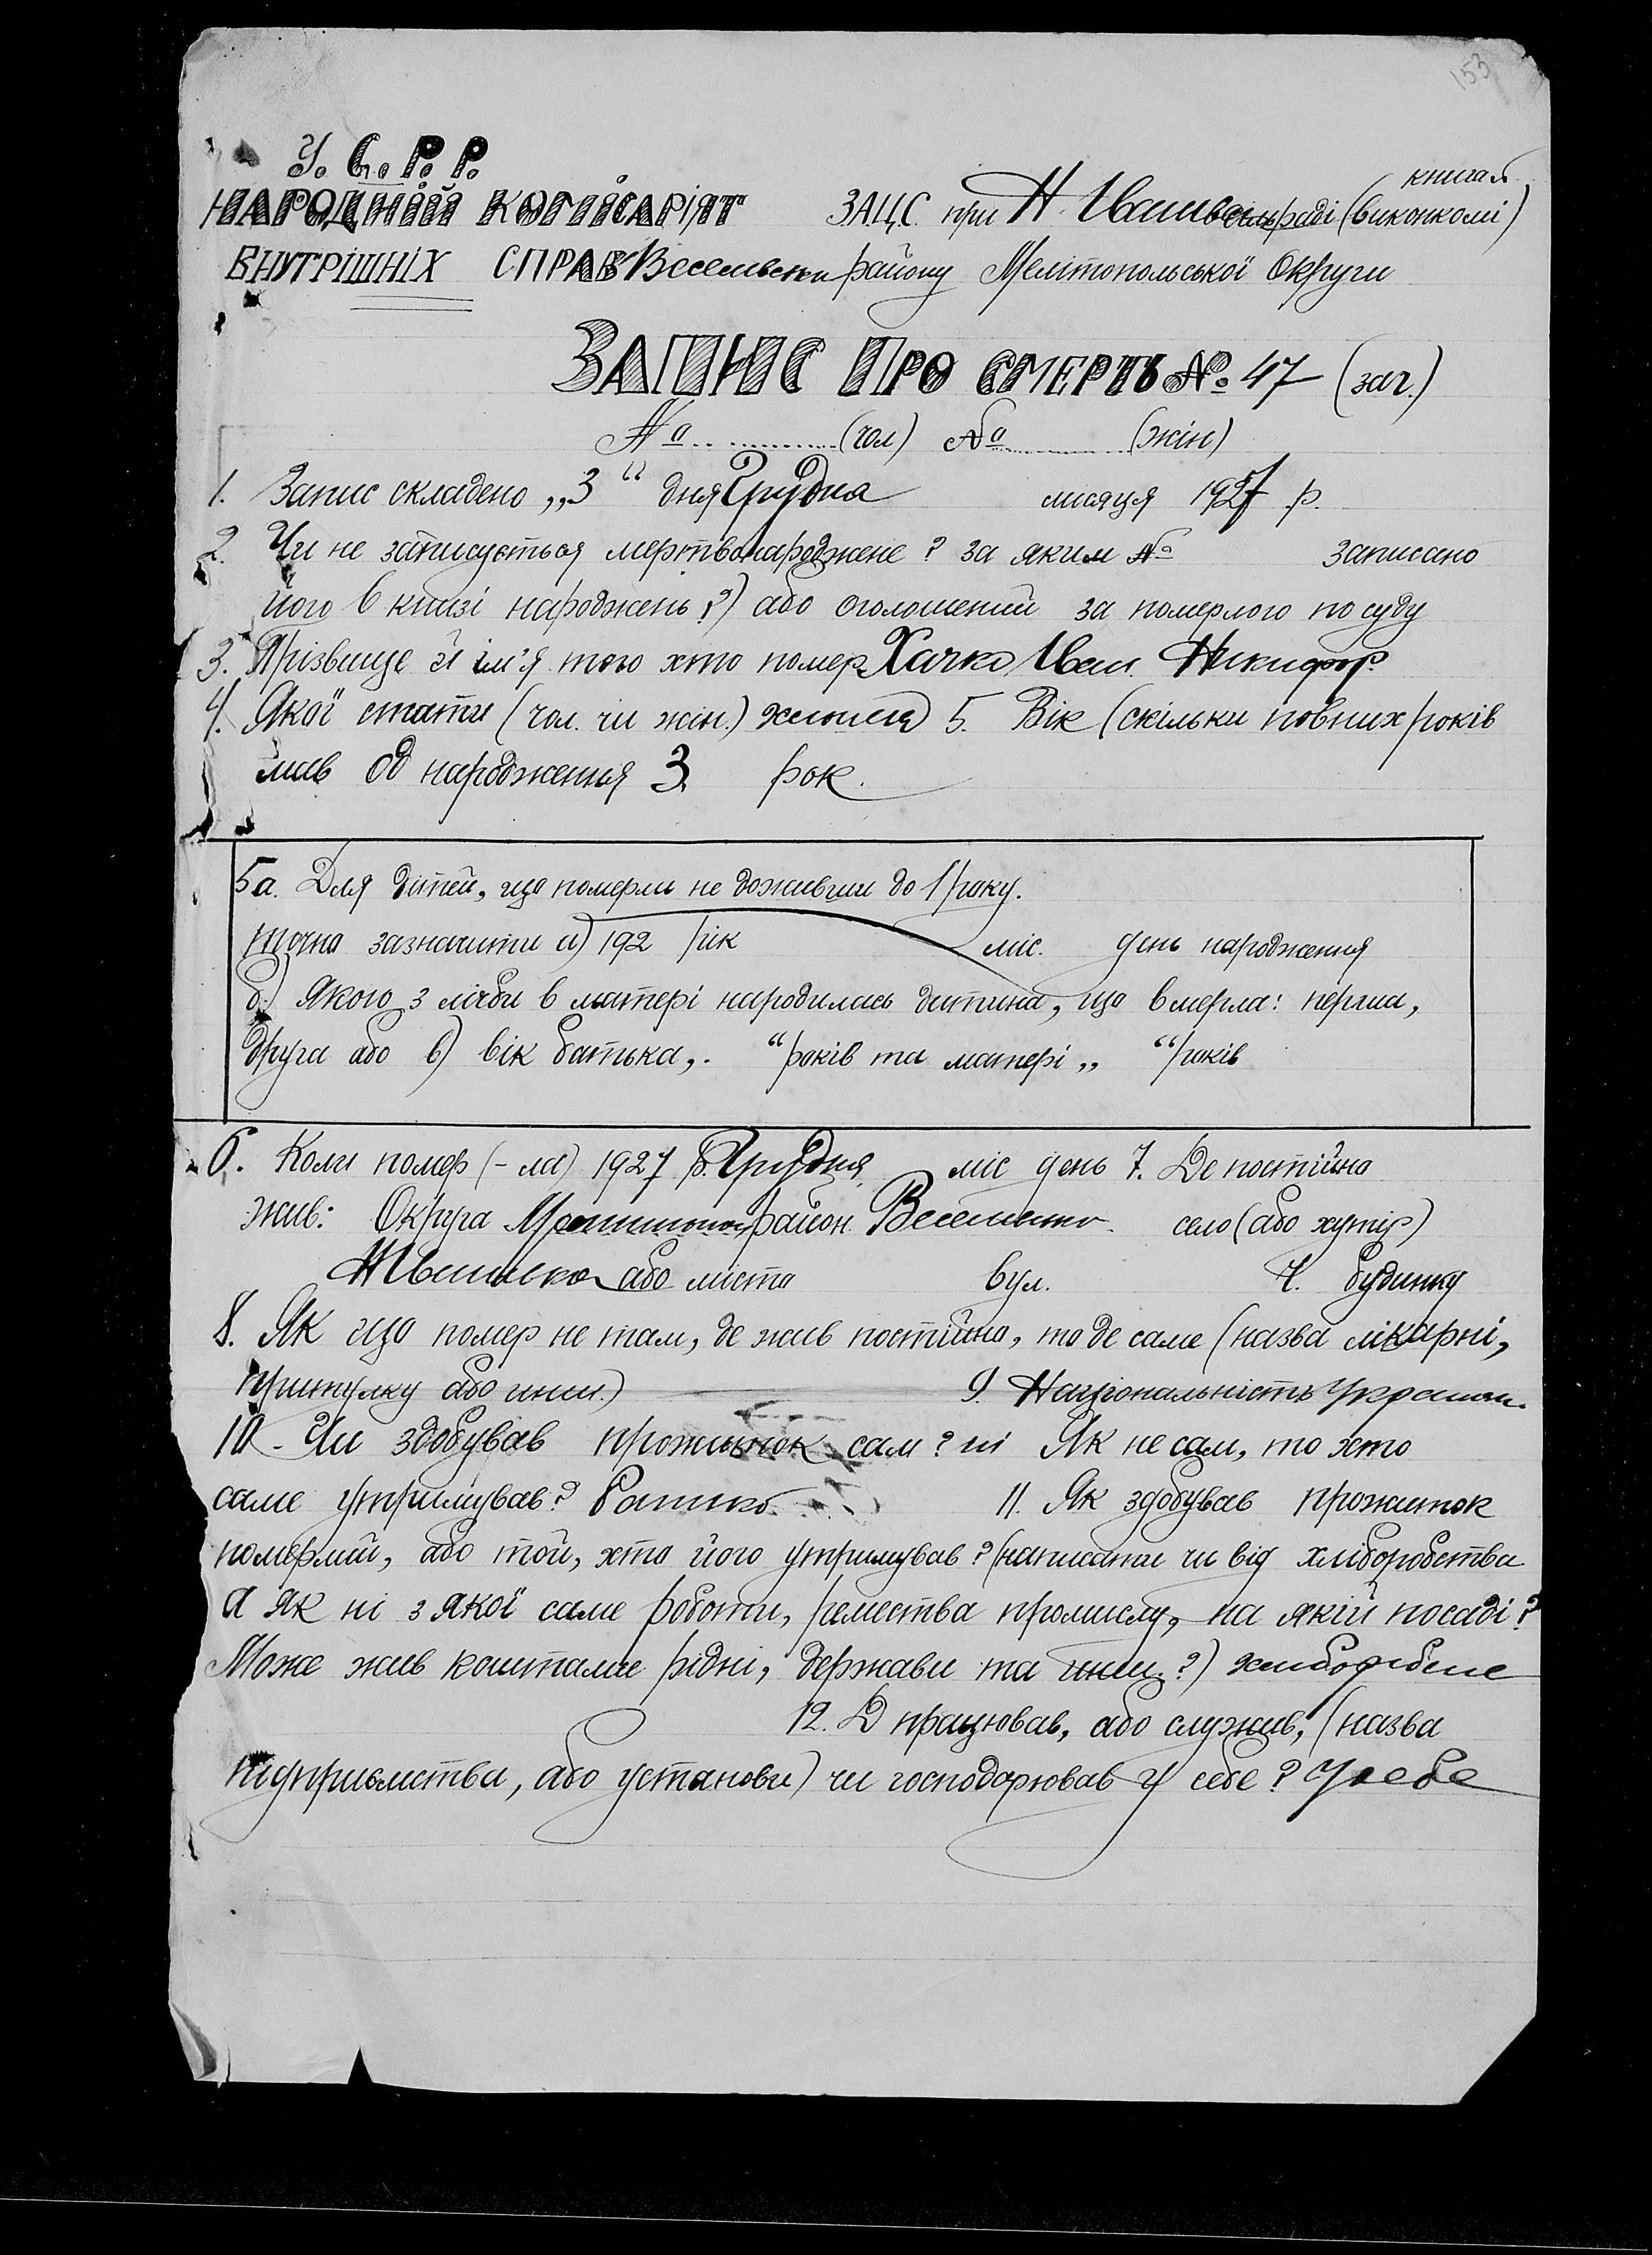 153
У. С. Р. Р.
книгам
НАРОДНІЙ КОМІСАРІЯТ ЗАЦС при Н. Іванівсільраді (виконкомі)
ВНУТРІШНІХ СПРАВ Веселівськи району Мелітопольської Округи
ЗАПИС ПРО СМЕРТЬ № 47 (заг.)
№ .. ............ (чол) № ............ (жін)
1. Запис складено „3“ дня Грудня мисяця 1927 р.
2. Чи не записується мертвонароджене? за яким № записано
його в книзі народжень?) або оголошений за померлого по суду
3. Прізвище й ім'я того хто помер Хачко Иван Никифор
4. Якої стати (чол. чи жін.) хлопця 5. Вік (скільки повних років
мав од народження 3 рок.
5а. Для дітей, що померли не доживши до 1 року.
точно зазначити а) 192 рік міс. день народження
б) якого з лічби в матері народилась дитина, що вмерла: перша,
друга або в) вік батька „ “ років та матері „ “ років
6. Коли помер (-ла) 1927 р. Грудня міс день 7. Де постійно
жив: Округа Мелитопол район Веселивко село (або хутір)
або міста вул. Ч. будинку
8. Як що помер не там, де жив постійно, то де саме (назва лікарні,
притулку або инш.) 9. Національність Украинец
10 - Чи здобував прожиток сам? ні Як не сам, то хто
саме утримував? Батько 11. Як здобував прожиток
померлий, або той, хто його утримував? (написати чи від хліборобства
а як ні з якої саме роботи, ремества промислу, на якій посаді?
Може жив коштами рідні, держави та инш.?)
12. Д працював, або служив, (назва
підприємства, або установи) чи господорював у себе? У себе